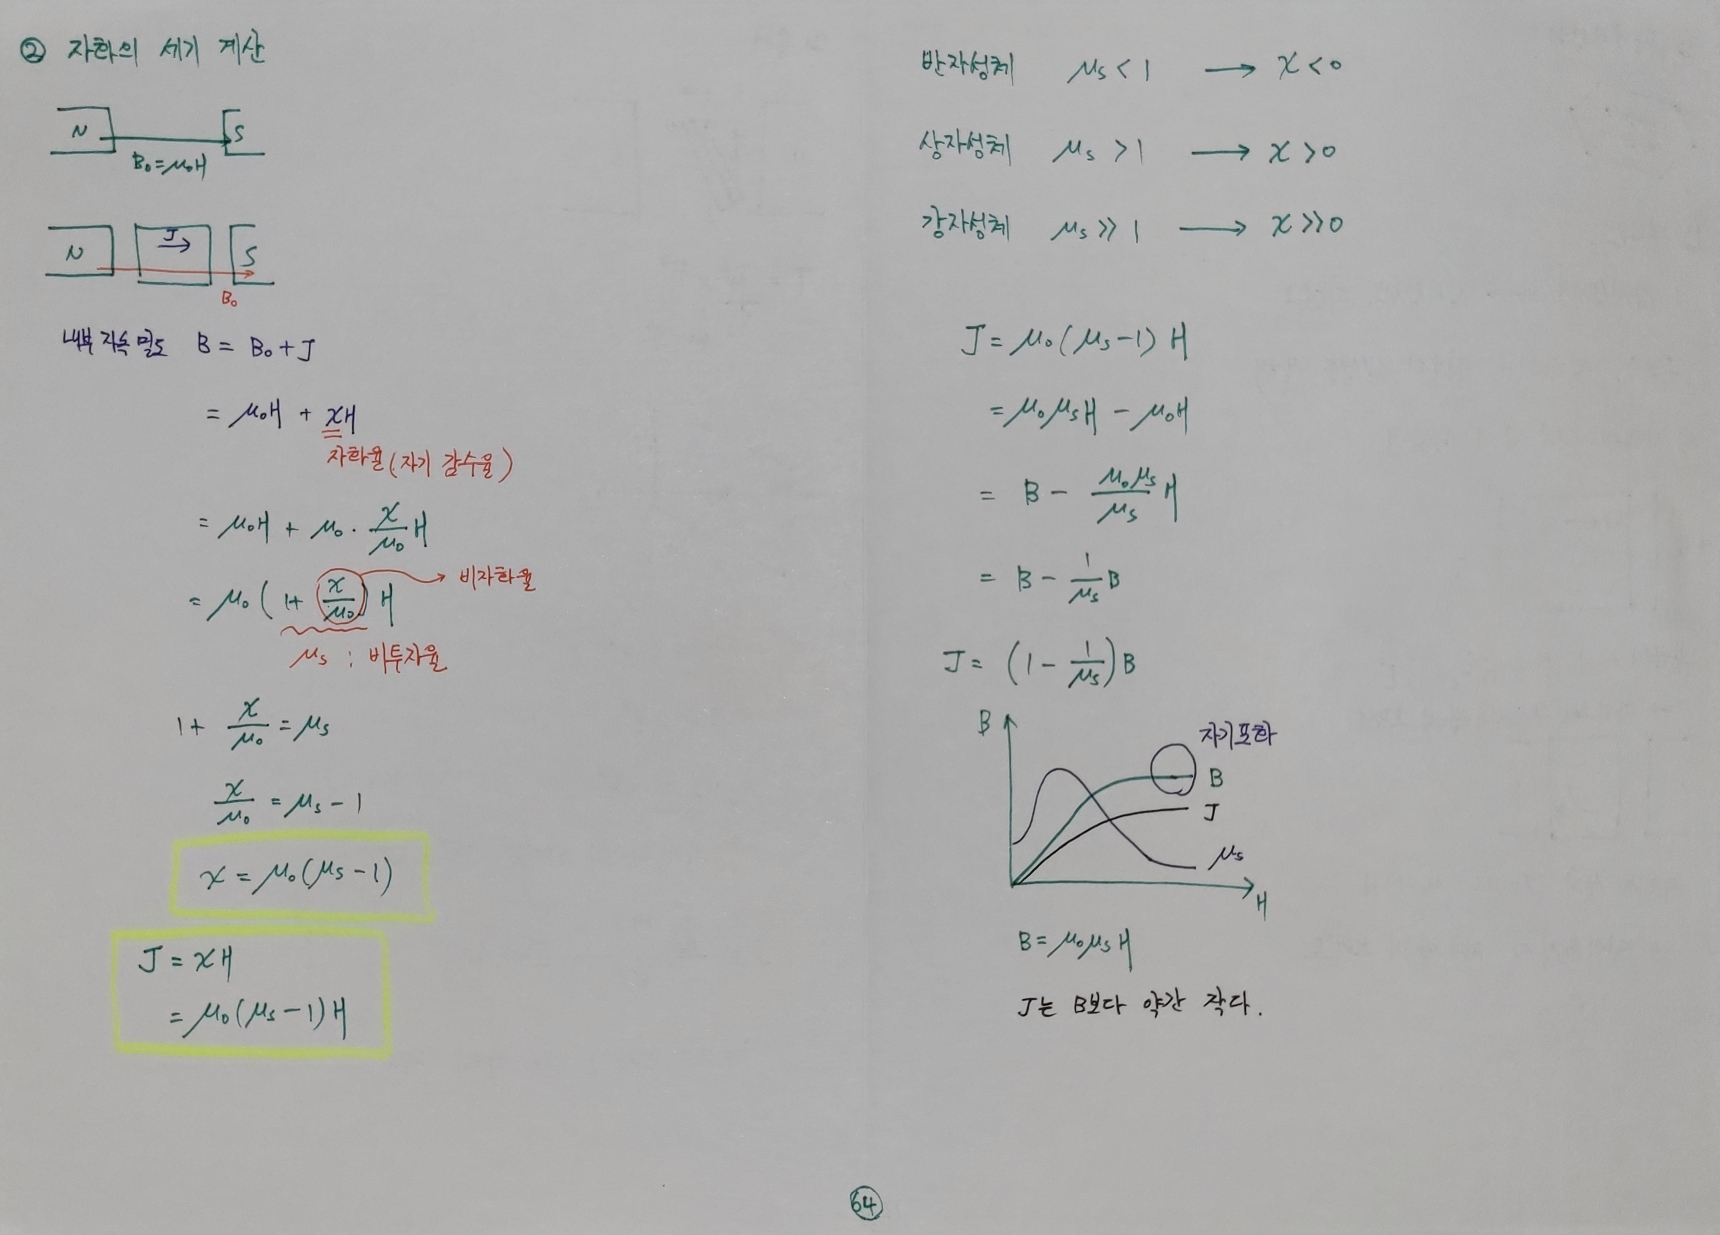 ② 자화의 세기 계산
N S
B₀=μ₀H
N J S
B₀
내부 자속 밀도 B = B₀+J
= μ₀H + χH
자화율(자기 감수율)
= μ₀H + μ₀ · χ/μ₀ H
= μ₀(1+ χ/μ₀) H → 비자화율
μs : 비투자율
1+ χ/μ₀ = μs
χ/μ₀ = μs - 1
χ = μ₀(μs-1)
J = χH
= μ₀(μs-1)H
반자성체 μs < 1 → χ < 0
상자성체 μs > 1 → χ > 0
강자성체 μs ≫ 1 → χ ≫ 0
J = μ₀(μs-1) H
= μ₀μsH - μ₀H
= B - μ₀μs/μs H
= B - 1/μs B
J = (1 - 1/μs)B
B 자기포화
B
J
μs
H
B = μ₀μsH
J는 B보다 약간 작다.
64